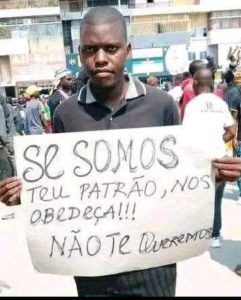 SE SOMOS
TEU PATRÃO, NOS
OBEDEÇA!!!
NÃO TE QUEREMOS